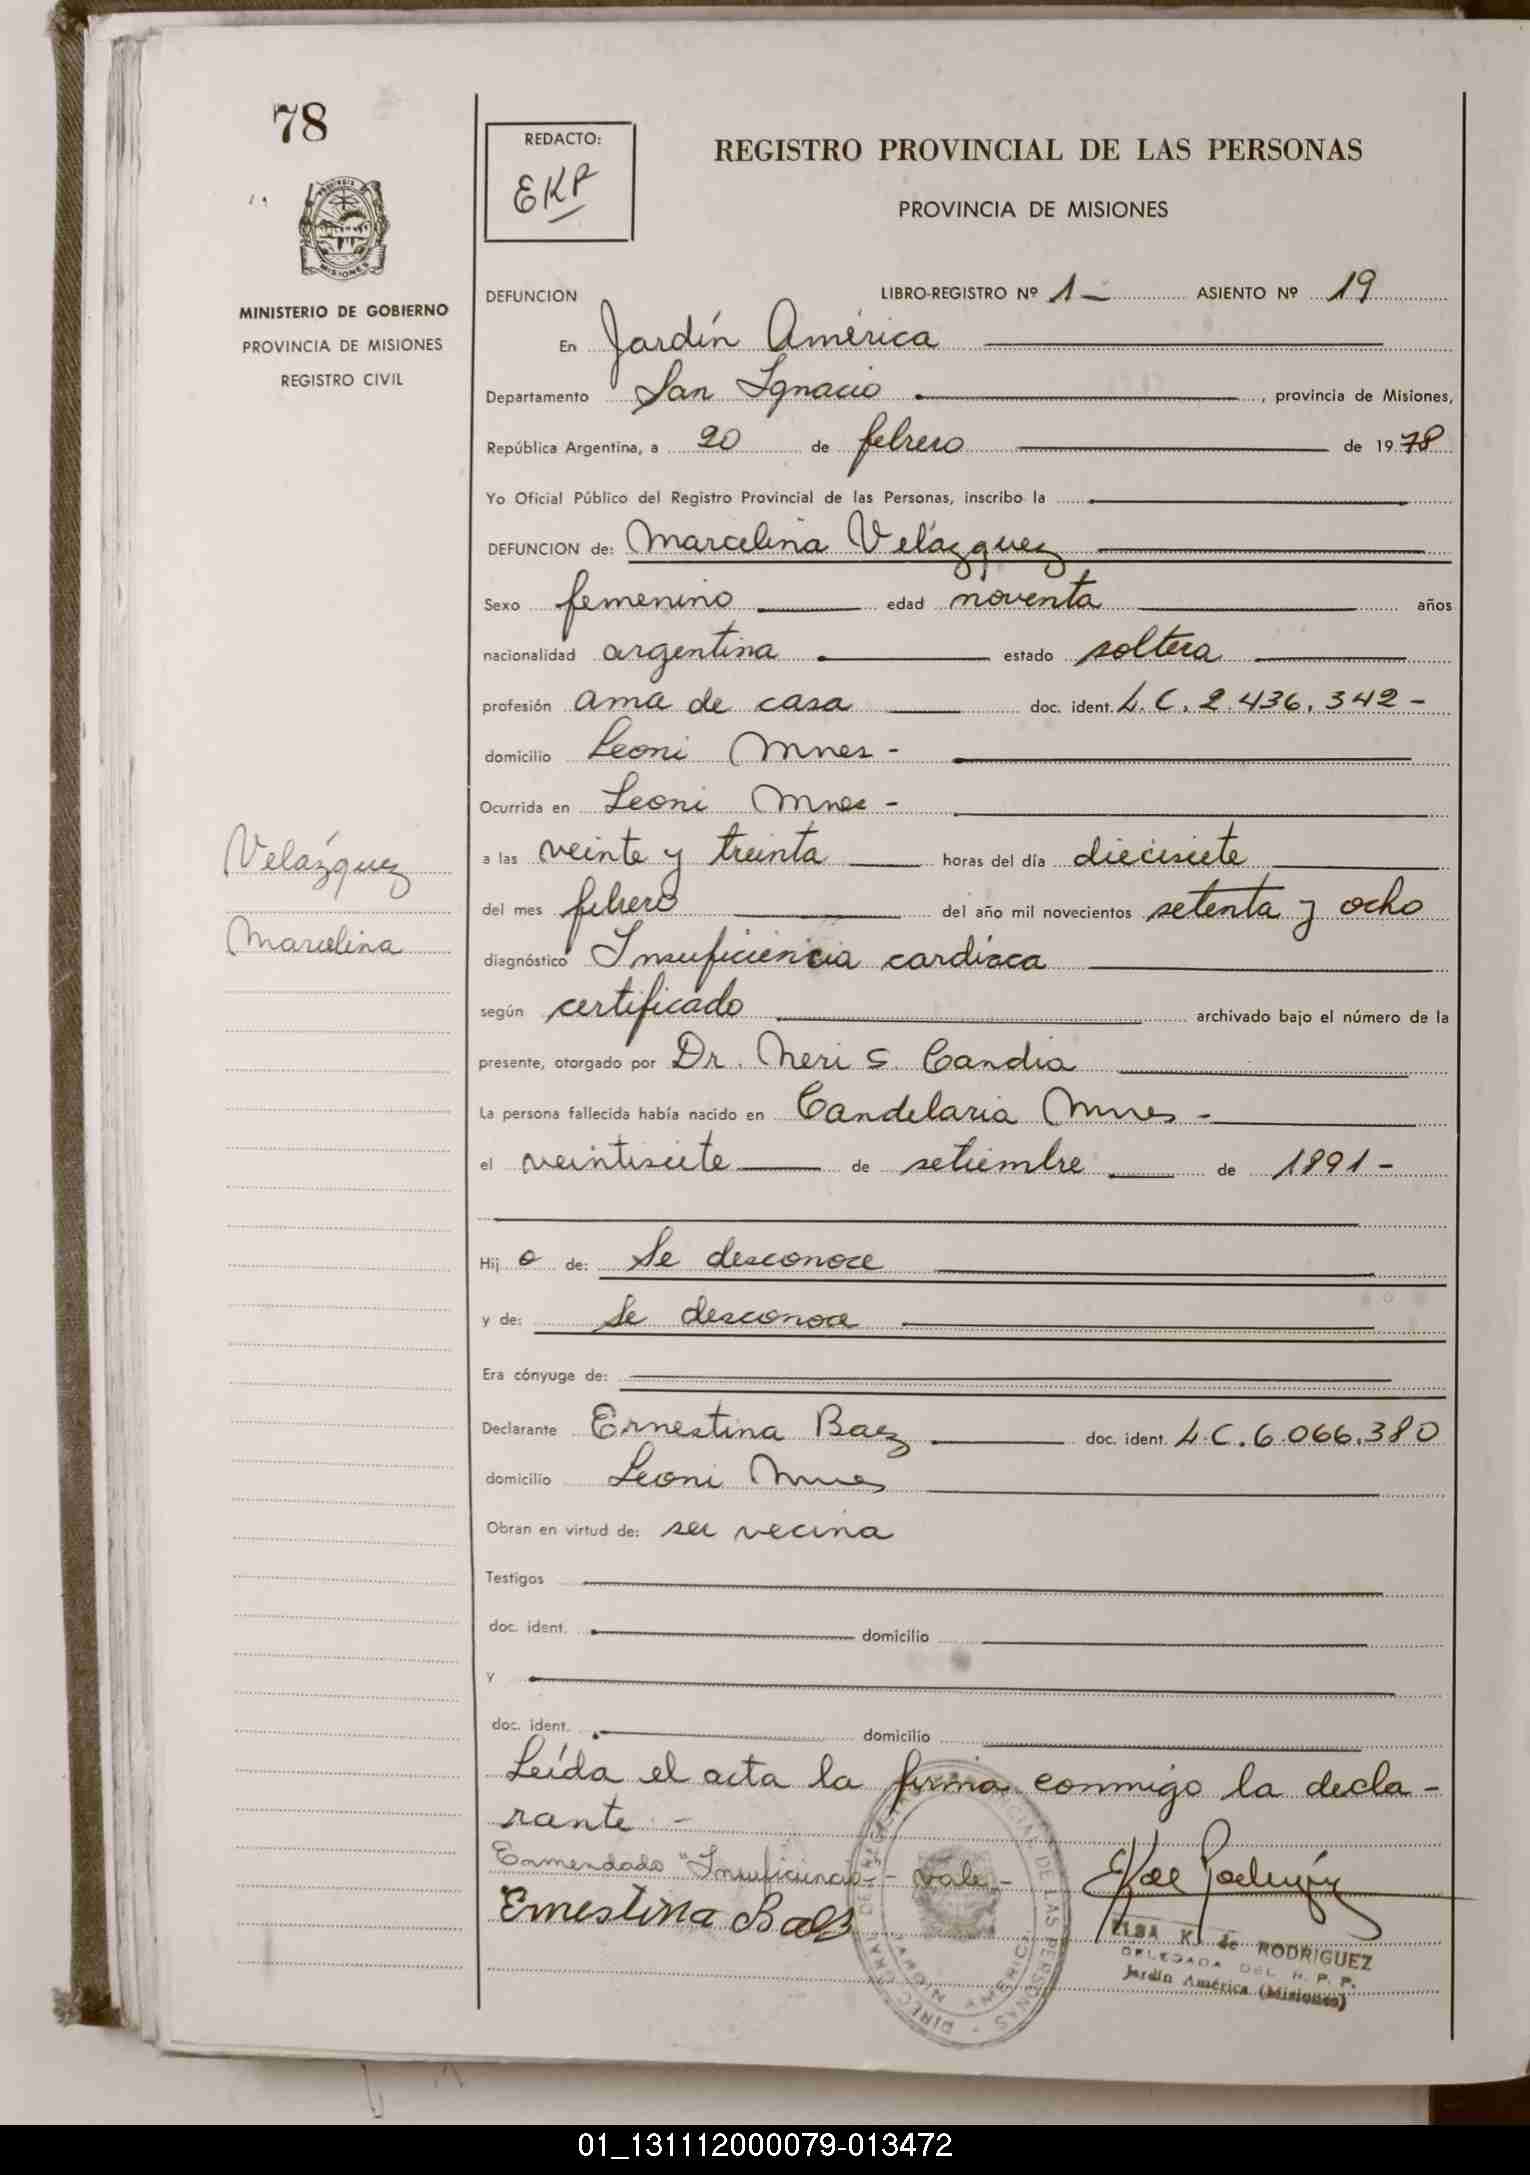 78
REDACTO:
EKR
REGISTRO PROVINCIAL DE LAS PERSONAS
PROVINCIA DE MISIONES
MISIONES
MINISTERIO DE GOBIERNO
PROVINCIA DE MISIONES
REGISTRO CIVIL
DEFUNCION LIBRO-REGISTRO Nº 1- ASIENTO Nº 19
En Jardín América
Departamento San Ignacio, provincia de Misiones,
República Argentina, a 20 de febrero de 1978
Yo Oficial Público del Registro Provincial de las Personas, inscribo la
DEFUNCION de: Marcelina Velázquez
Sexo femenino edad noventa años
nacionalidad argentina estado soltera
profesión ama de casa doc. ident. L.C. 2.436.342-
domicilio Leoni Mnes-
Ocurrida en Leoni Mnes-
Velázquez
Marcelina
a las veinte y treinta horas del día diecisiete
del mes febrero del año mil novecientos setenta y ocho
diagnóstico Insuficiencia cardíaca
según certificado archivado bajo el número de la
presente, otorgado por Dr. Neri S. Candia
La persona fallecida había nacido en Candelaria Mnes-
el veintisiete de setiembre de 1891-
Hij a de: Se desconoce
y de: Se desconoce
Era cónyuge de:
Declarante Ernestina Baez doc. ident. L.C. 6.066.380
domicilio Leoni Mnes
Obran en virtud de: ser vecina
Testigos
doc. ident. domicilio
y
doc. ident. domicilio
Leída el acta la firma conmigo la decla-
rante-
Enmendado "Insuficiencia- vale-
Ernestina Baez
ELSA K. de RODRIGUEZ
DELEGADA DEL R. P. P.
Jardín América (Misiones)
01_131112000079-013472